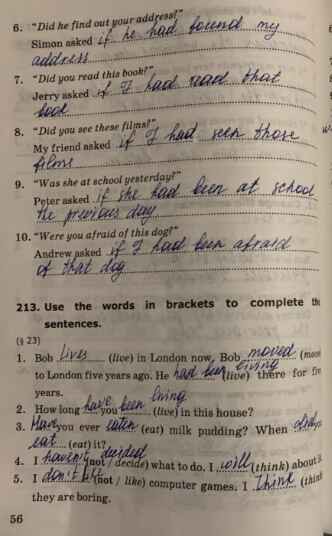 6. "Did he find out your address?"
Simon asked if he had found my
address
7. "Did you read this book?"
Jerry asked if I had read that
book
8. "Did you see these films?"
My friend asked if I had seen those
films
9. "Was she at school yesterday?"
Peter asked if she had been at school
the previous day
10. "Were you afraid of this dog?"
Andrew asked if I had been afraid
of that dog
213. Use the words in brackets to complete the
sentences.
(§ 23)
1. Bob lives (live) in London now. Bob moved (move
to London five years ago. He had been living (live) there for five
years.
2. How long have you been living (live) in this house?
3. Have you ever eaten (eat) milk pudding? When did you
eat (eat) it?
4. I haven't decided (not / decide) what to do. I will (think) about it
5. I don't like (not / like) computer games. I think (think
they are boring.
56